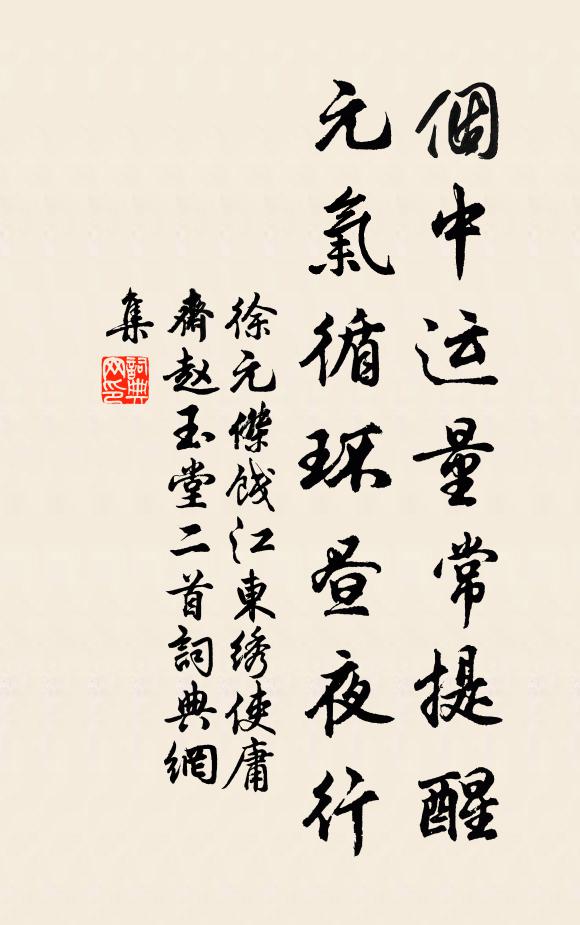 個中运量常提醒
元氣循环昼夜行
徐元傑饯江東绣使庸
齋赵玉堂二首詞典網
集
詞典
网印